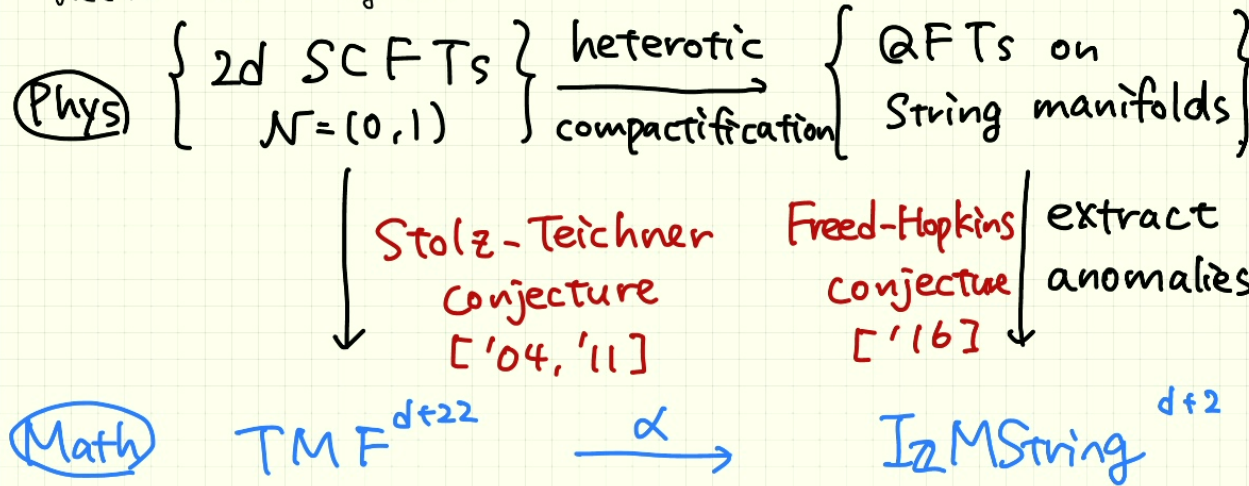 { 2d SCFTs N=(0,1) } heterotic compactification { QFTs on String manifolds }
Phys
Stolz-Teichner conjecture ['04, '11]
Freed-Hopkins conjectue ['16]
extract anomalies
Math
TMF^{d+22} α I_ℤMString^{d+2}